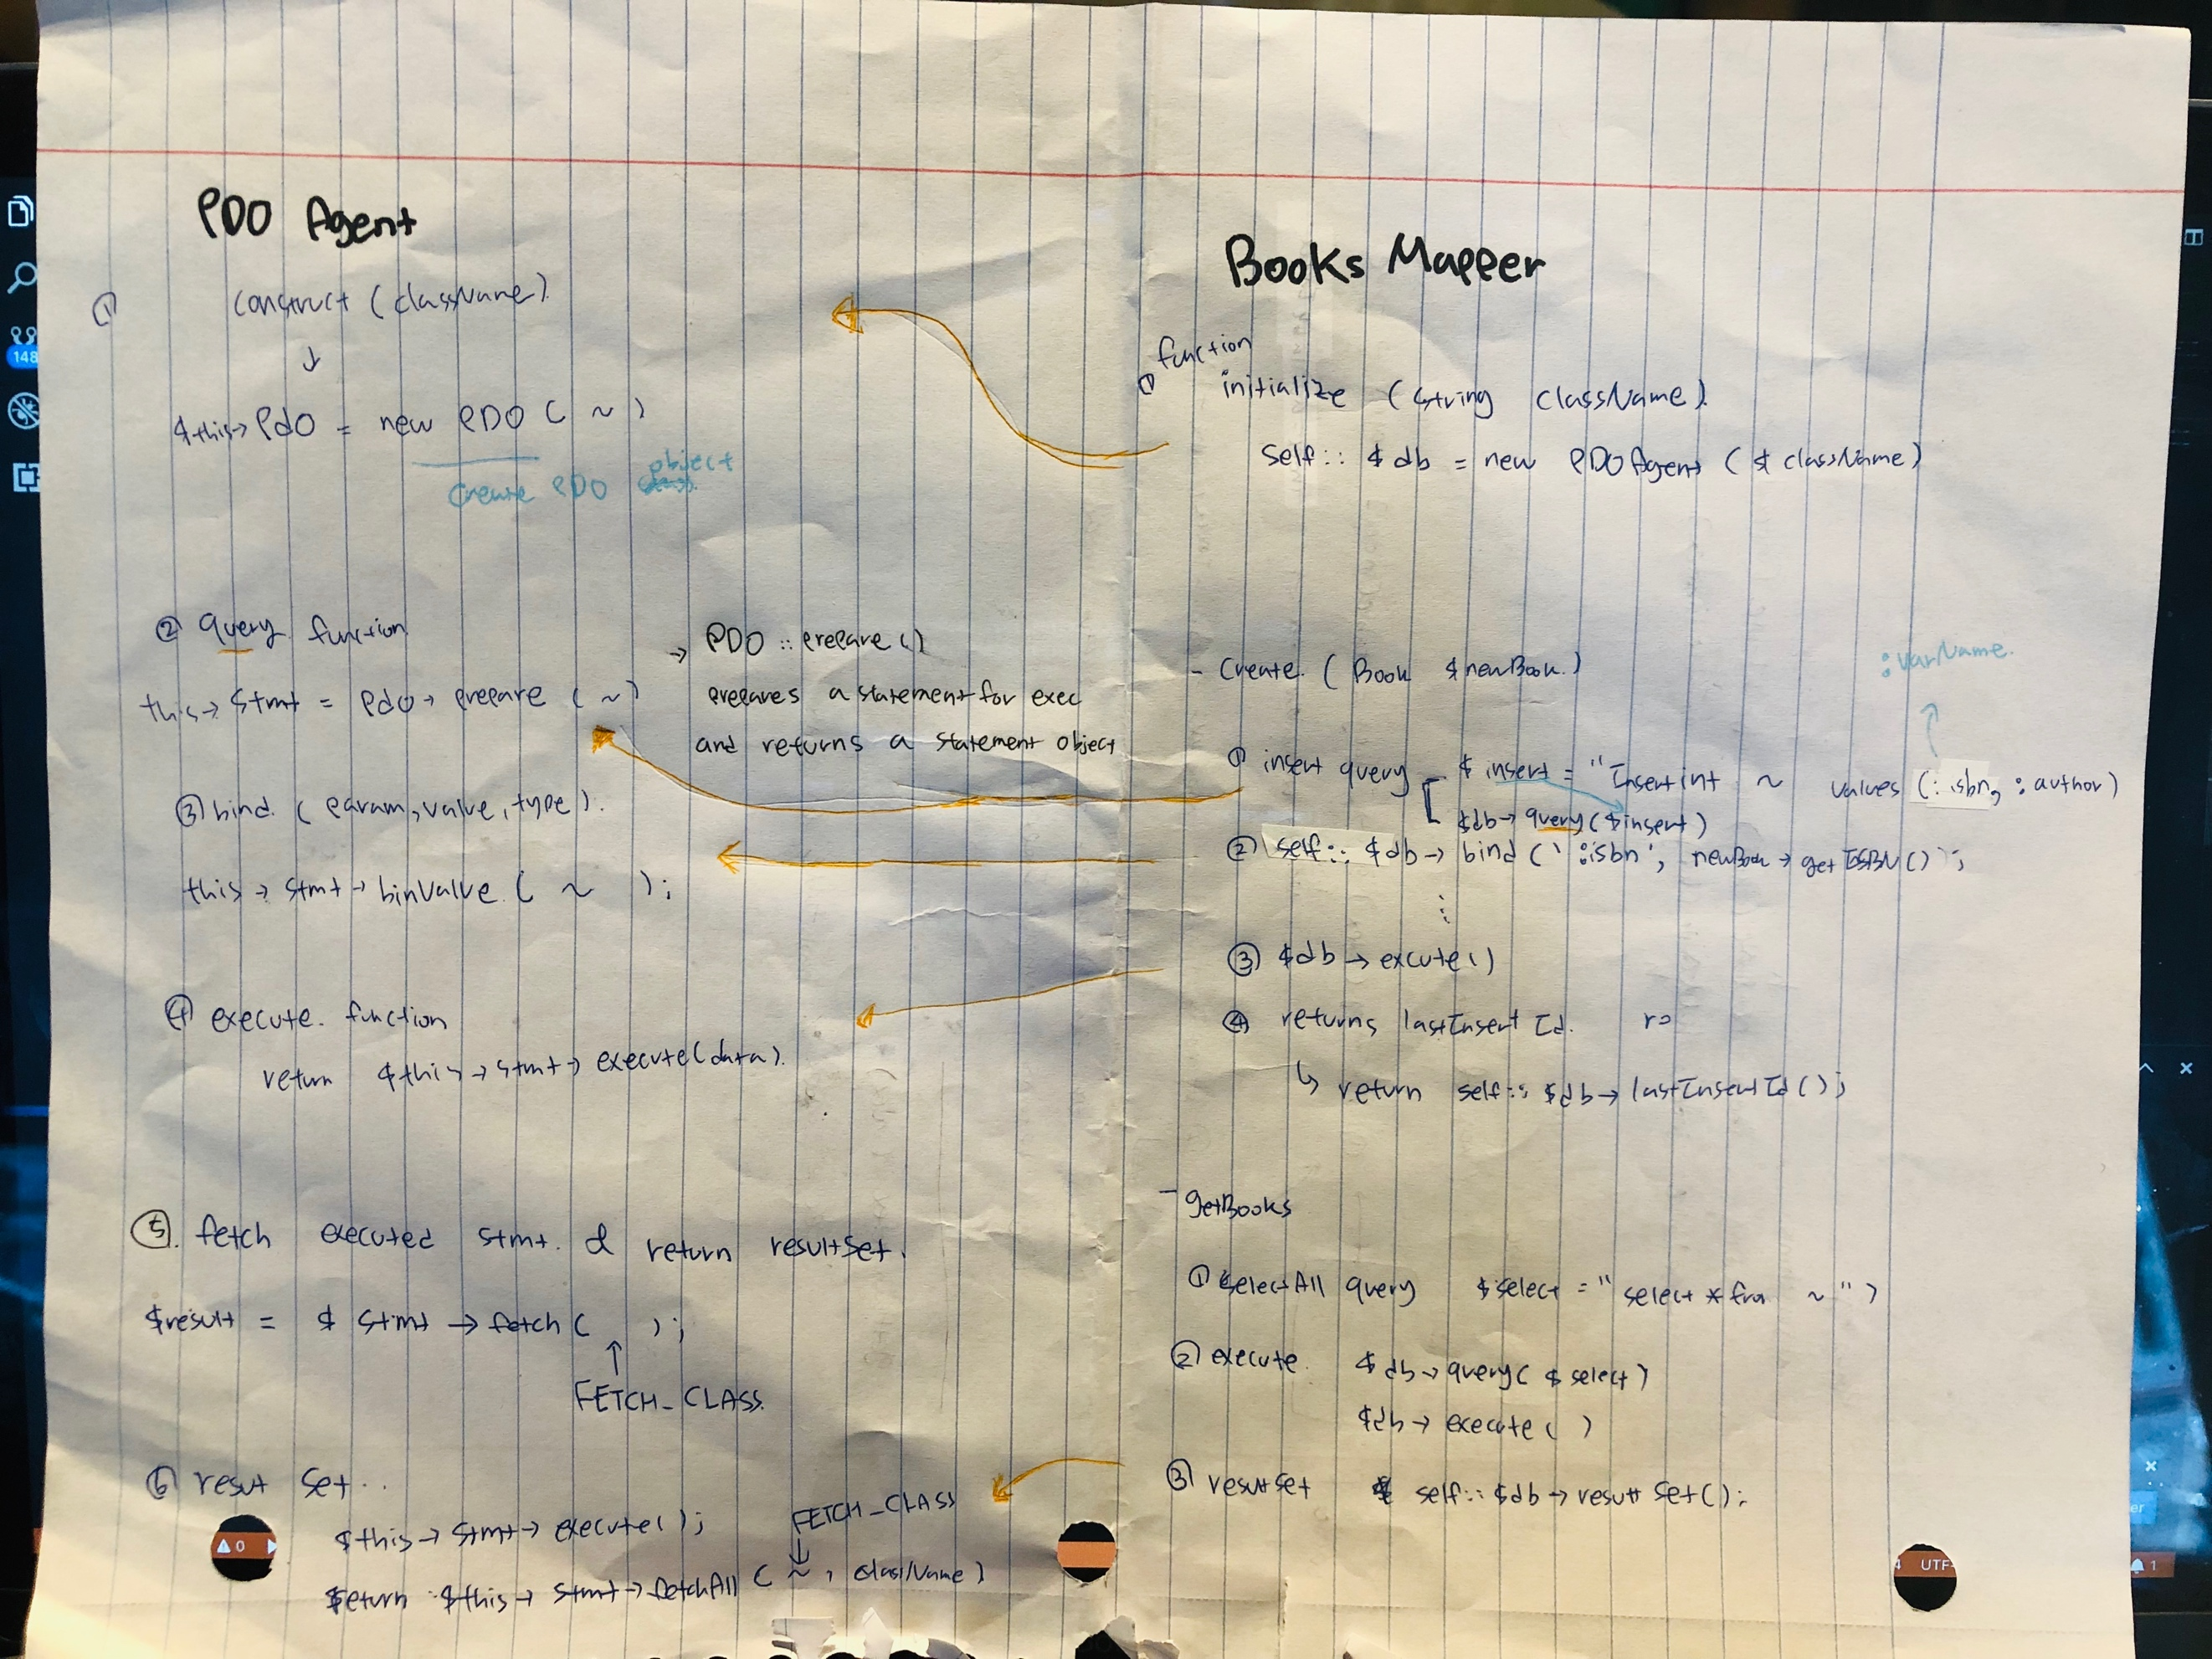 PDO Agent
① construct (className)
↓
$this→ Pdo = new PDO ( ~ )
create PDO object
② query function
this→ stmt = Pdo→ prepare ( ~ )
→ PDO :: prepare ()
prepares a statement for exec
and returns a statement object
③ bind ( param, value, type).
this → stmt → binValue ( ~ );
④ execute. function
return $this → stmt → execute(data).
⑤. fetch executed stmt. & return resultSet.
$result = $ stmt → fetch ( );
↑
FETCH_CLASS.
⑥ resut set..
$this → stmt → execute();
FETCH_CLASS
↓
$eturn $this → stmt → fetchAll ( ~ , className )
Books Mapper
① function
initialize (string className).
self:: $db = new PDOAgent ($className)
- Create. ( Book $newBook.)
:varName.
↑
① insert query $insert = "Insert int ~ values (:isbn, :author)
$db→ query($insert)
② self:: $db→ bind (':isbn', newBook → getISBN());
⋮
③ $db → excute()
④ returns lastInsert Id. r=
↳ return self:: $db → lastInsertId();
- getBooks
① selectAll query $select = "select * fro ~ ")
② execute. $db → query( $select)
$db → execute ( )
③ resutset self:: $db → resutt Set();
148
0
UTF-
1
er